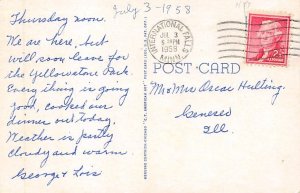 July 3-1958
Thursday noon.
We are here, but
will soon leave for
the Yellowstone Park.
Every thing is going
good, cooked our
dinner out today.
Weather is partly
cloudy and warm
George & Lois
INTERNATIONAL FALLS
JUL 3
PM
1958
MINN.
POST CARD
Mr & Mrs Oscar Hulting
Geneseo
Ill